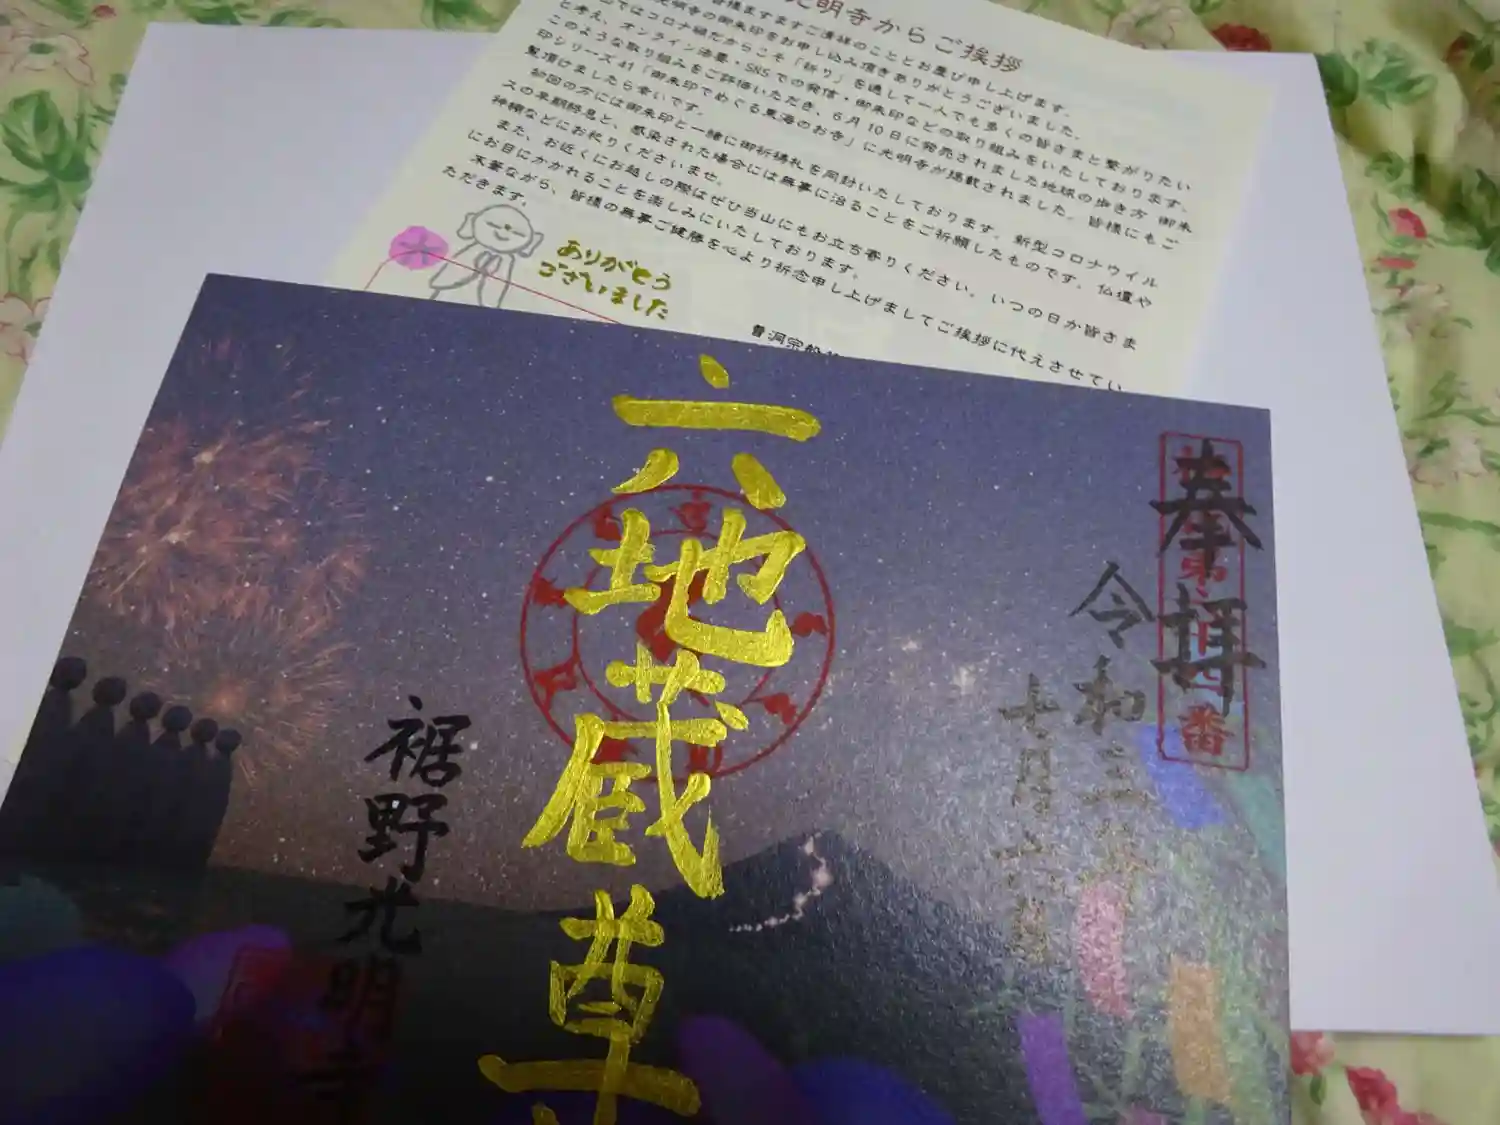 光明寺からご挨拶
皆様ますますご清祥のこととお慶び申し上げます。
光明寺の御朱印をお申し込み頂きありがとうございました。
山ではコロナ禍だからこそ「祈り」を通して一人でも多くの皆さまと繋がりたい
と考え、オンライン法要・SNSでの発信・御朱印などの取り組みをいたしております。
このような取り組みをご評価いただき、6月10日に発売されました地球の歩き方 御朱
印シリーズ41「御朱印でめぐる東海のお寺」に光明寺が掲載されました。皆様にもご
覧頂けましたら幸いです。
初回の方には御朱印と一緒に御祈祷札を同封いたしております。新型コロナウイル
スの早期終息と、感染された場合には無事に治ることをご祈願したものです。仏壇や
神棚などにお祀りくださいませ。
また、お近くにお越しの際はぜひ当山にもお立ち寄りください。いつの日か皆さま
にお目にかかれることを楽しみにいたしております。
末筆ながら、皆様の無事ご健勝を心より祈念申し上げましてご挨拶に代えさせてい
ただきます。
ありがとう
ございました
曹洞宗
奉拝
番
令和三年
六地蔵尊
裾野光明寺